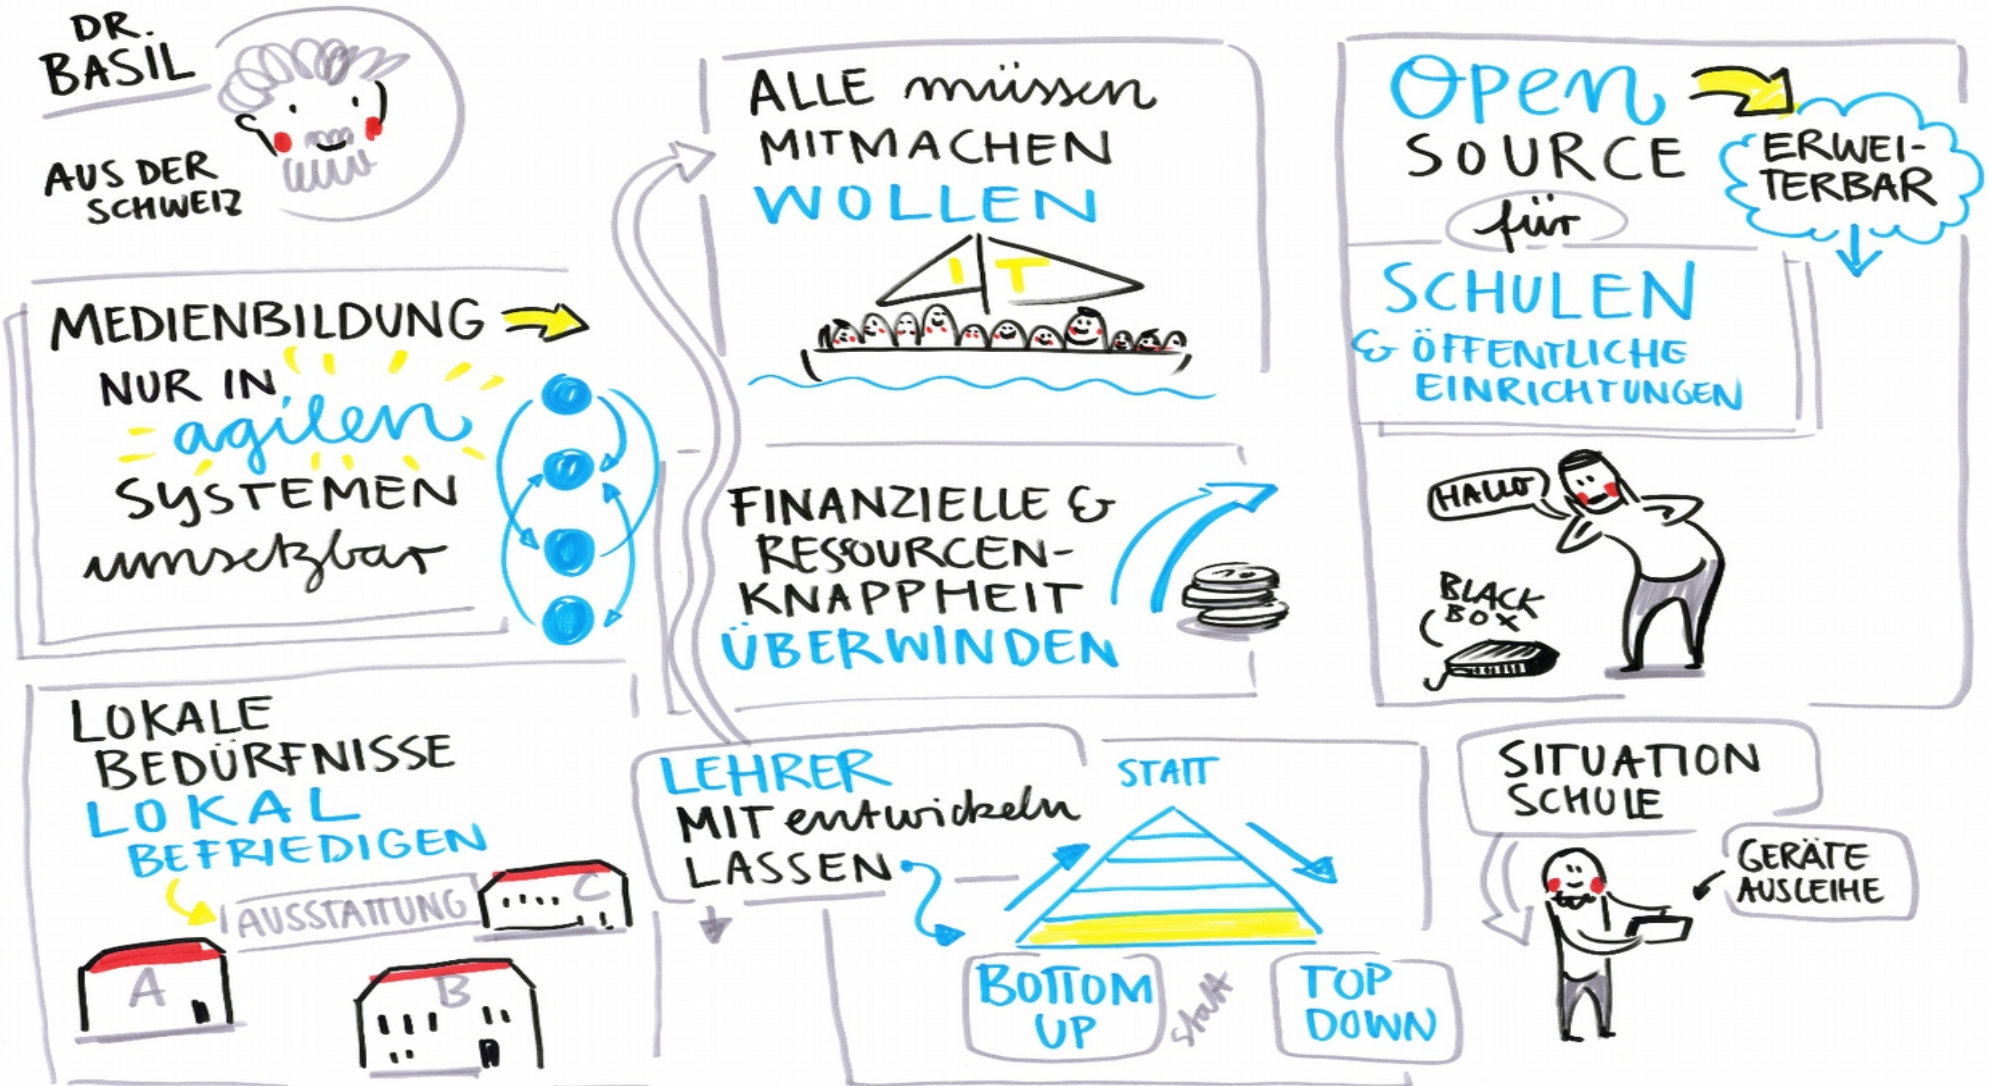 DR.
BASIL
AUS DER
SCHWEIZ
MEDIENBILDUNG
NUR IN
agilen
SYSTEMEN
umsetzbar
LOKALE
BEDÜRFNISSE
LOKAL
BEFRIEDIGEN
AUSSTATTUNG
A
B
C
ALLE müssen
MITMACHEN
WOLLEN
IT
FINANZIELLE &
RESSOURCEN-
KNAPPHEIT
ÜBERWINDEN
LEHRER
MIT entwickeln
LASSEN
STATT
BOTTOM
UP
statt
TOP
DOWN
OPEN
SOURCE
für
ERWEI-
TERBAR
SCHULEN
& ÖFFENTLICHE
EINRICHTUNGEN
HALLO
BLACK
BOX
SITUATION
SCHULE
GERÄTE
AUSLEIHE